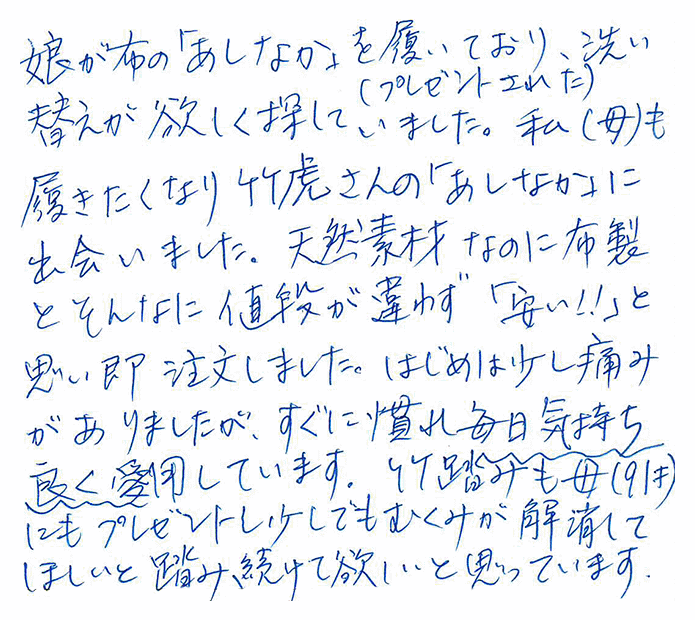 娘が布の「あしなか」を履いており、洗い
(プレゼントされた)
替えが欲しく探していました。私(母)も
履きたくなり竹虎さんの「あしなか」に
出会いました。天然素材なのに布製
とそんなに値段が違わず「安い!!」と
思い即注文しました。はじめは少し痛み
がありましたが、すぐに慣れ毎日気持ち
良く愛用しています。竹踏みも母(91才)
にもプレゼントし少しでもむくみが解消して
ほしいと踏み続けて欲しいと思っています.